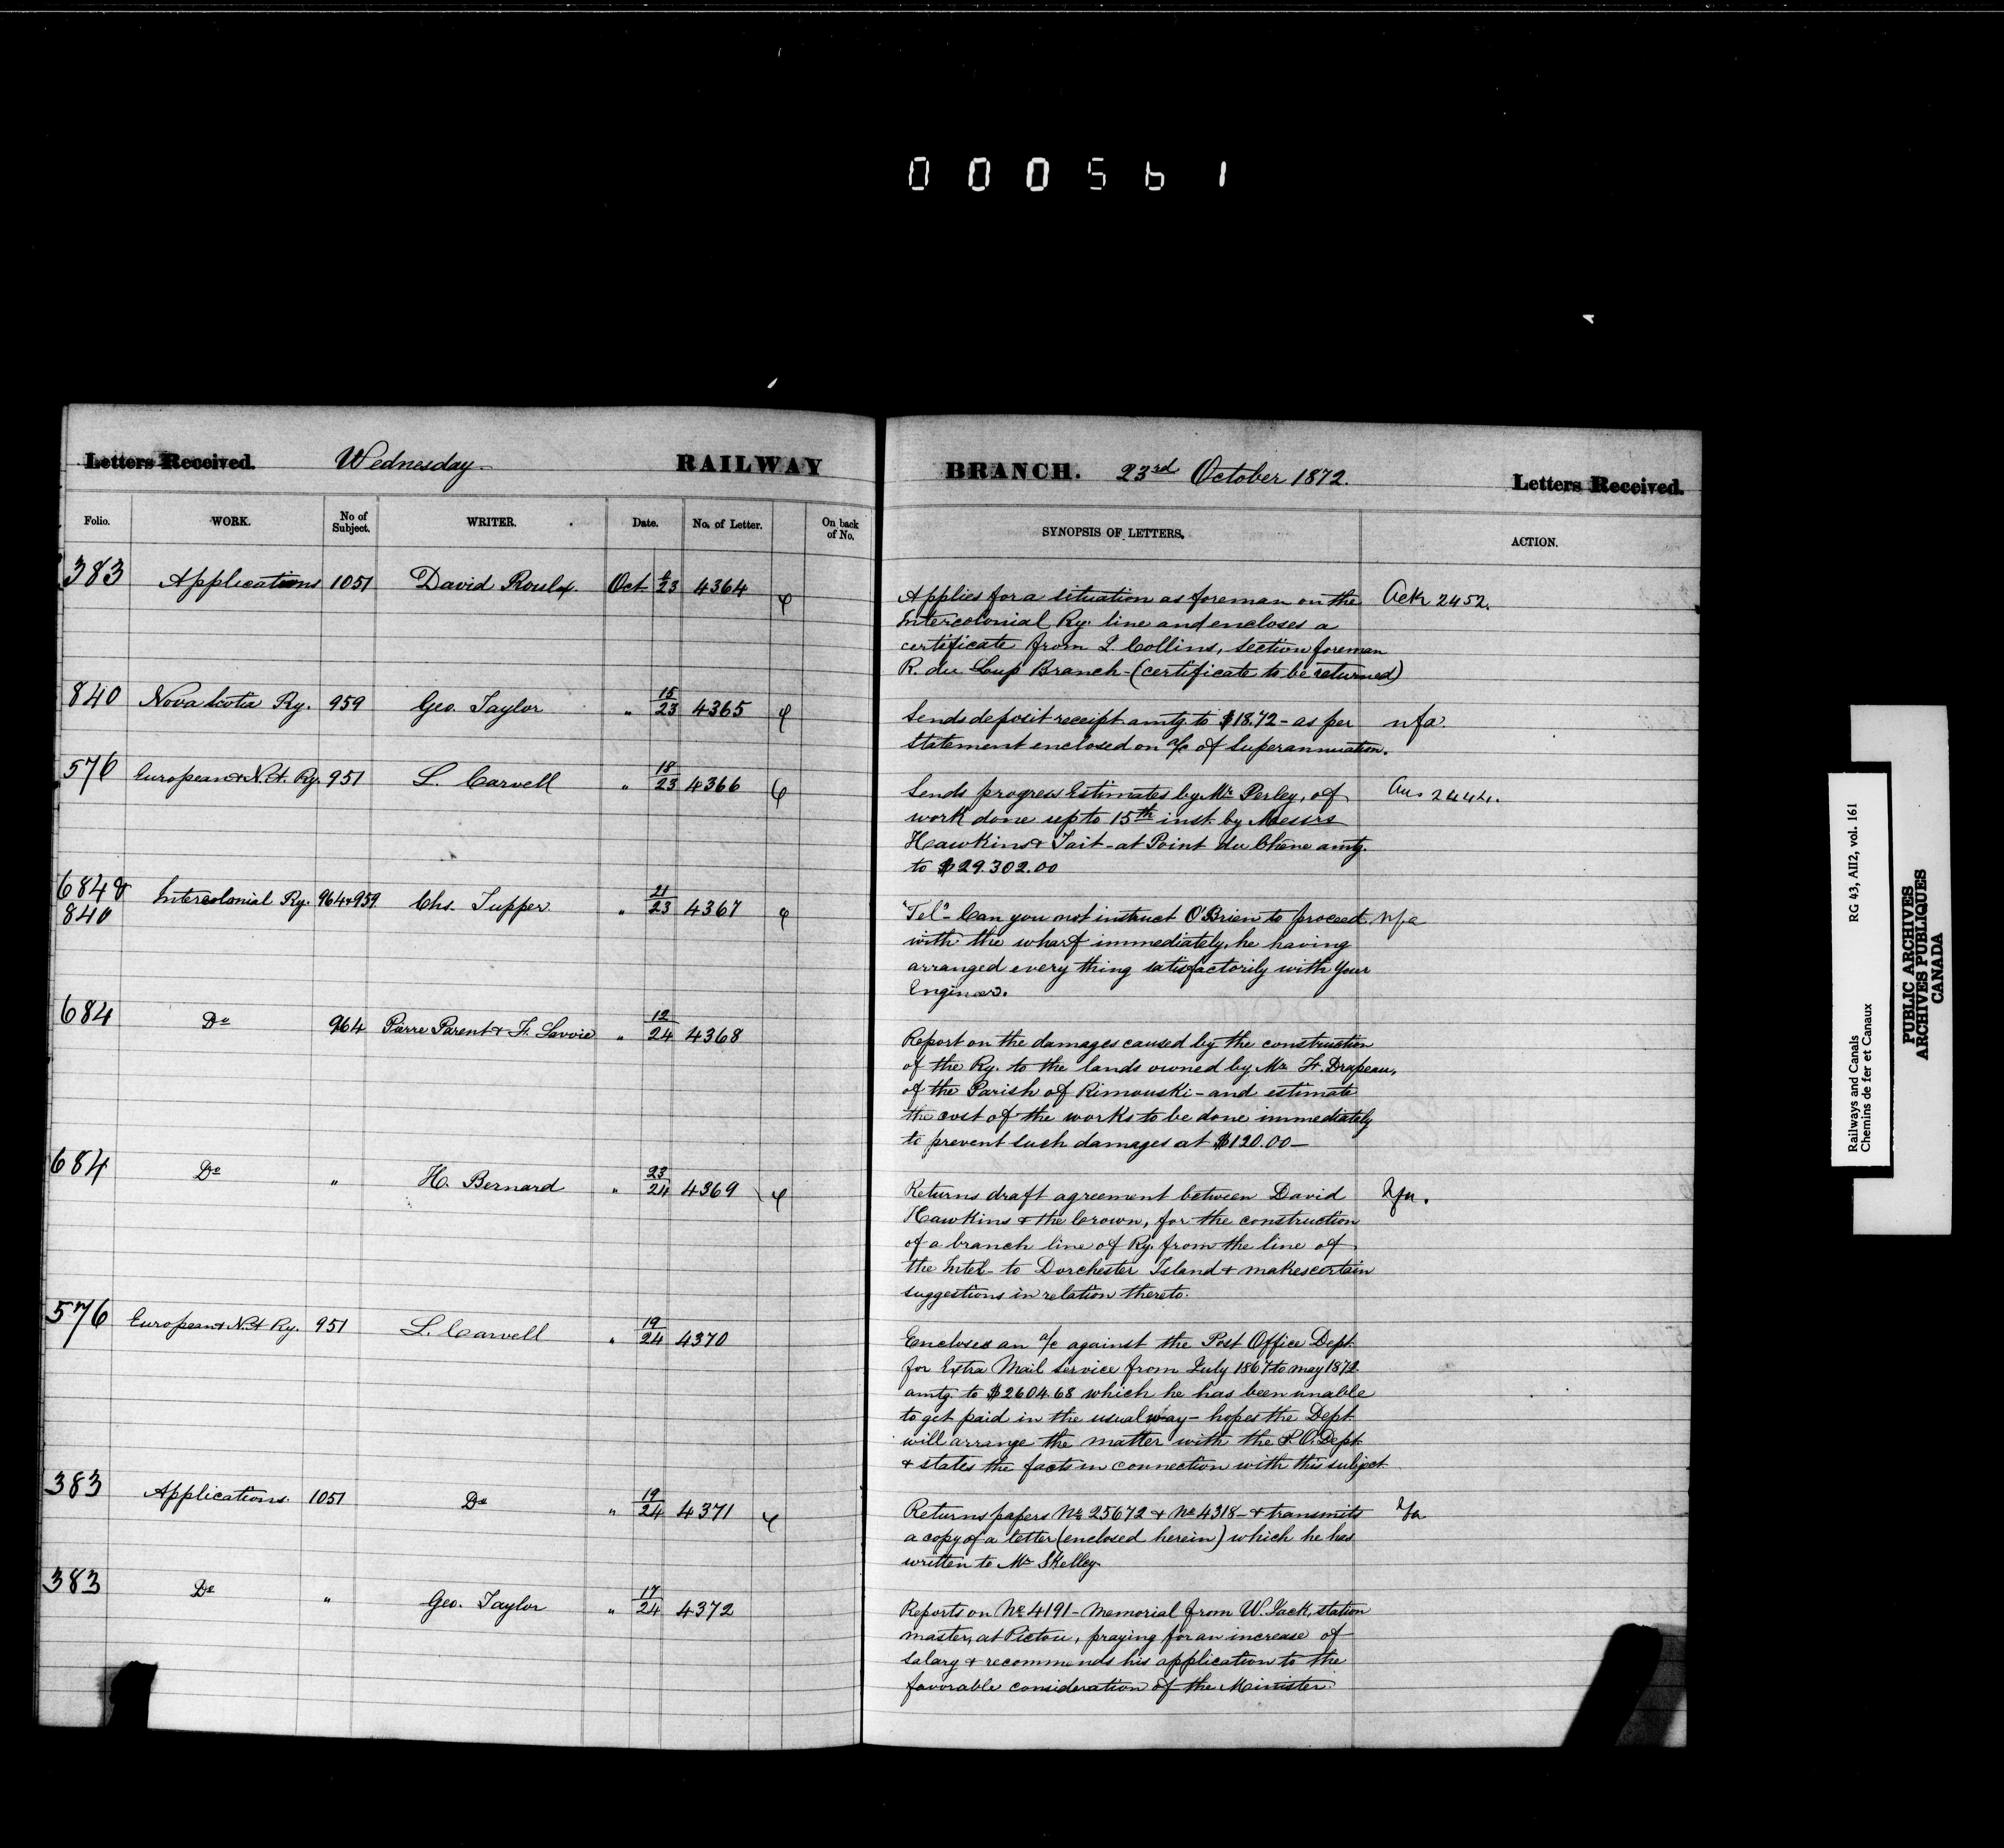 000561
Letters Received. Wednesday RAILWAY BRANCH. 23rd October 1872. Letters Received.
Folio. WORK. No of Subject. WRITER. Date. No. of Letter. On back of No. SYNOPSIS OF LETTERS. ACTION.
383 Applications 1051 David Roulx. Oct 23 4364
Applies for a situation as foreman on the Ack 2452.
Intercolonial Ry. line and encloses a
certificate from L. Collins, section foreman
R. du Loup Branch - (certificate to be returned)
840 Nova Scotia Ry. 959 Geo. Taylor " 15/23 4365
Sends deposit receipt amtg to $18.72 - as per nfa.
statement enclosed on a/c of Superannuation.
576 European & N.A. Ry. 951 L. Carvell " 18/23 4366
Sends progress Estimates by Mr Perley, of 2444.
work done up to 15th inst. by Messrs
Hawkins & Tait - at Point du Chêne amtg.
to $29.302.00
684 & 840 Intercolonial Ry. 964 & 959 Chs. Tupper " 21/23 4367
"Tel" - Can you not instruct O'Brien to proceed nfa
with the wharf immediately, he having
arranged every thing satisfactorily with your
Engineer.
684 Do 964 Pierre Parent & F. Lavoie " 12/24 4368
Report on the damages caused by the construction
of the Ry. to the lands owned by Mr F. Drapeau,
of the Parish of Rimouski - and estimate
the cost of the works to be done immediately
to prevent such damages at $120.00 -
684 Do " H. Bernard " 23/24 4369
Returns draft agreement between David nfa.
Hawkins & the Crown, for the construction
of a branch line of Ry. from the line of
the Intel - to Dorchester Island & makes certain
suggestions in relation thereto.
576 European & N.A. Ry. 951 L. Carvell " 19/24 4370
Encloses an a/c against the Post Office Dept.
for Extra Mail Service from July 1867 to may 1872
amtg. to $2604.68 which he has been unable
to get paid in the usual way - hopes the Dept
will arrange the matter with the P.O. Dept
& states the facts in connection with this subject
383 Applications. 1051 Do " 19/24 4371
Returns papers No 25672 & No 4318 - & transmits
a copy of a letter (enclosed herein) which he has
written to Mr Skelley.
383 Do " Geo. Taylor " 17/24 4372
Reports on No 4191 - Memorial from W. Jack, station
master, at Pictou, praying for an increase of
salary & recommends his application to the
favorable consideration of the Minister.
Railways and Canals RG 43, AII2, vol. 161
Chemins de fer et Canaux
PUBLIC ARCHIVES
ARCHIVES PUBLIQUES
CANADA